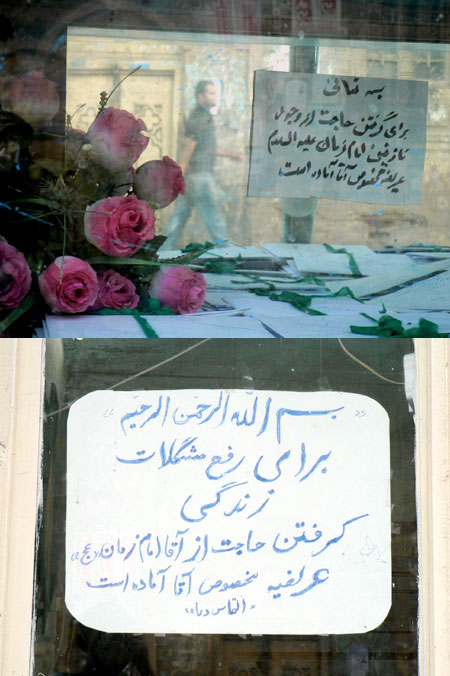 بسمه تعالی
برای گرفتن حاجت از وجود
نازنین امام زمان علیه السلام
عریضه مخصوص آقا آماده است
«بسم الله الرحمن الرحیم»
برای رفع مشکلات
زندگی
گرفتن حاجت از آقا امام زمان «عج»
عریضه مخصوص آقا آماده است
التماس دعا